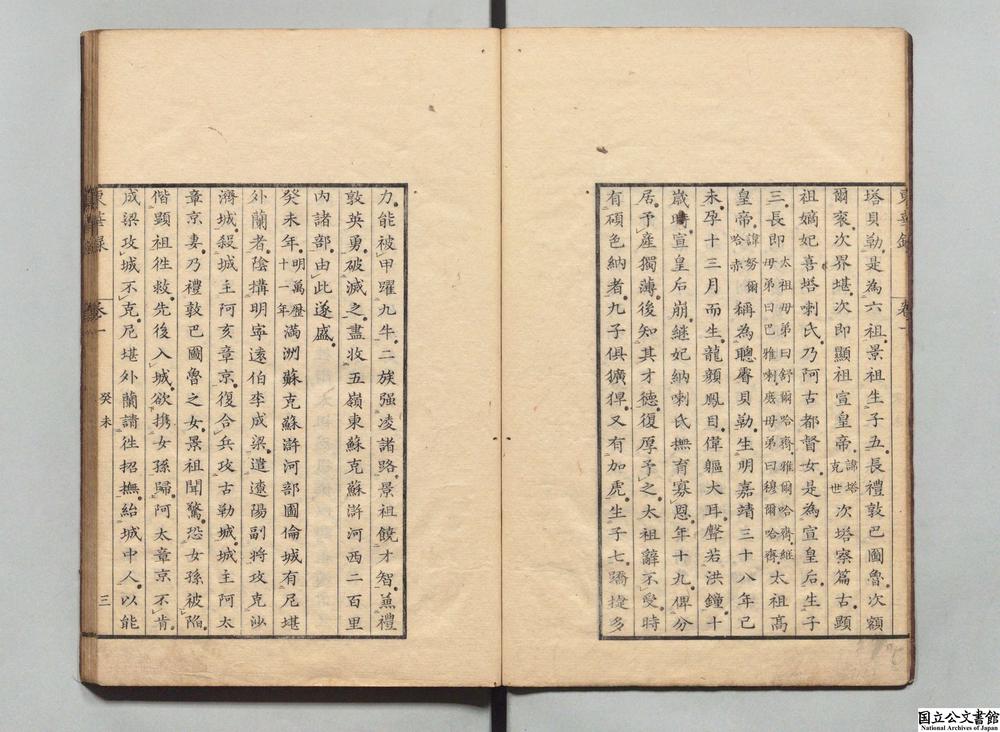 塔貝勒是為六祖景祖生子五長禮敦巴圖魯次額
爾袞次界堪次即顯祖宣皇帝諱塔克世次塔察篇古顯
祖嫡妃喜塔喇氏乃阿古都督女是為宣皇后生子
三長即太祖母弟曰舒爾哈齊雅爾哈齊繼母弟曰巴雅喇庶母弟曰穆爾哈齊太祖高
皇帝諱努爾哈赤稱為聰睿貝勒生明嘉靖三十八年己
未孕十三月而生龍顏鳳目偉軀大耳聲若洪鐘十
歲時宣皇后崩繼妃納喇氏撫育寡恩年十九俾分
居予產獨薄後知其才德復厚予之太祖辭不受時
有碩色納者九子俱獷猂又有加虎生子七蹻捷多
東華錄 卷一
力能被甲躍九牛二族强凌諸路景祖饒才智兼禮
敦英勇破滅之盡收五嶺東蘇克蘇滸河西二百里
內諸部由此遂盛
癸未年明萬歷十一年滿洲蘇克蘇滸河部圖倫城有尼堪
外蘭者陰搆明寧遠伯李成梁遣遼陽副將攻克沙
濟城殺城主阿亥章京復合兵攻古勒城城主阿太
章京妻乃禮敦巴國魯之女景祖聞驚恐女孫被陷
偕顯祖徃救先後入城欲携女孫歸阿太章京不肯
成梁攻城不克尼堪外蘭請徃招撫紿城中人以能
東華錄 卷一 癸未 三
国立公文書館
National Archives of Japan